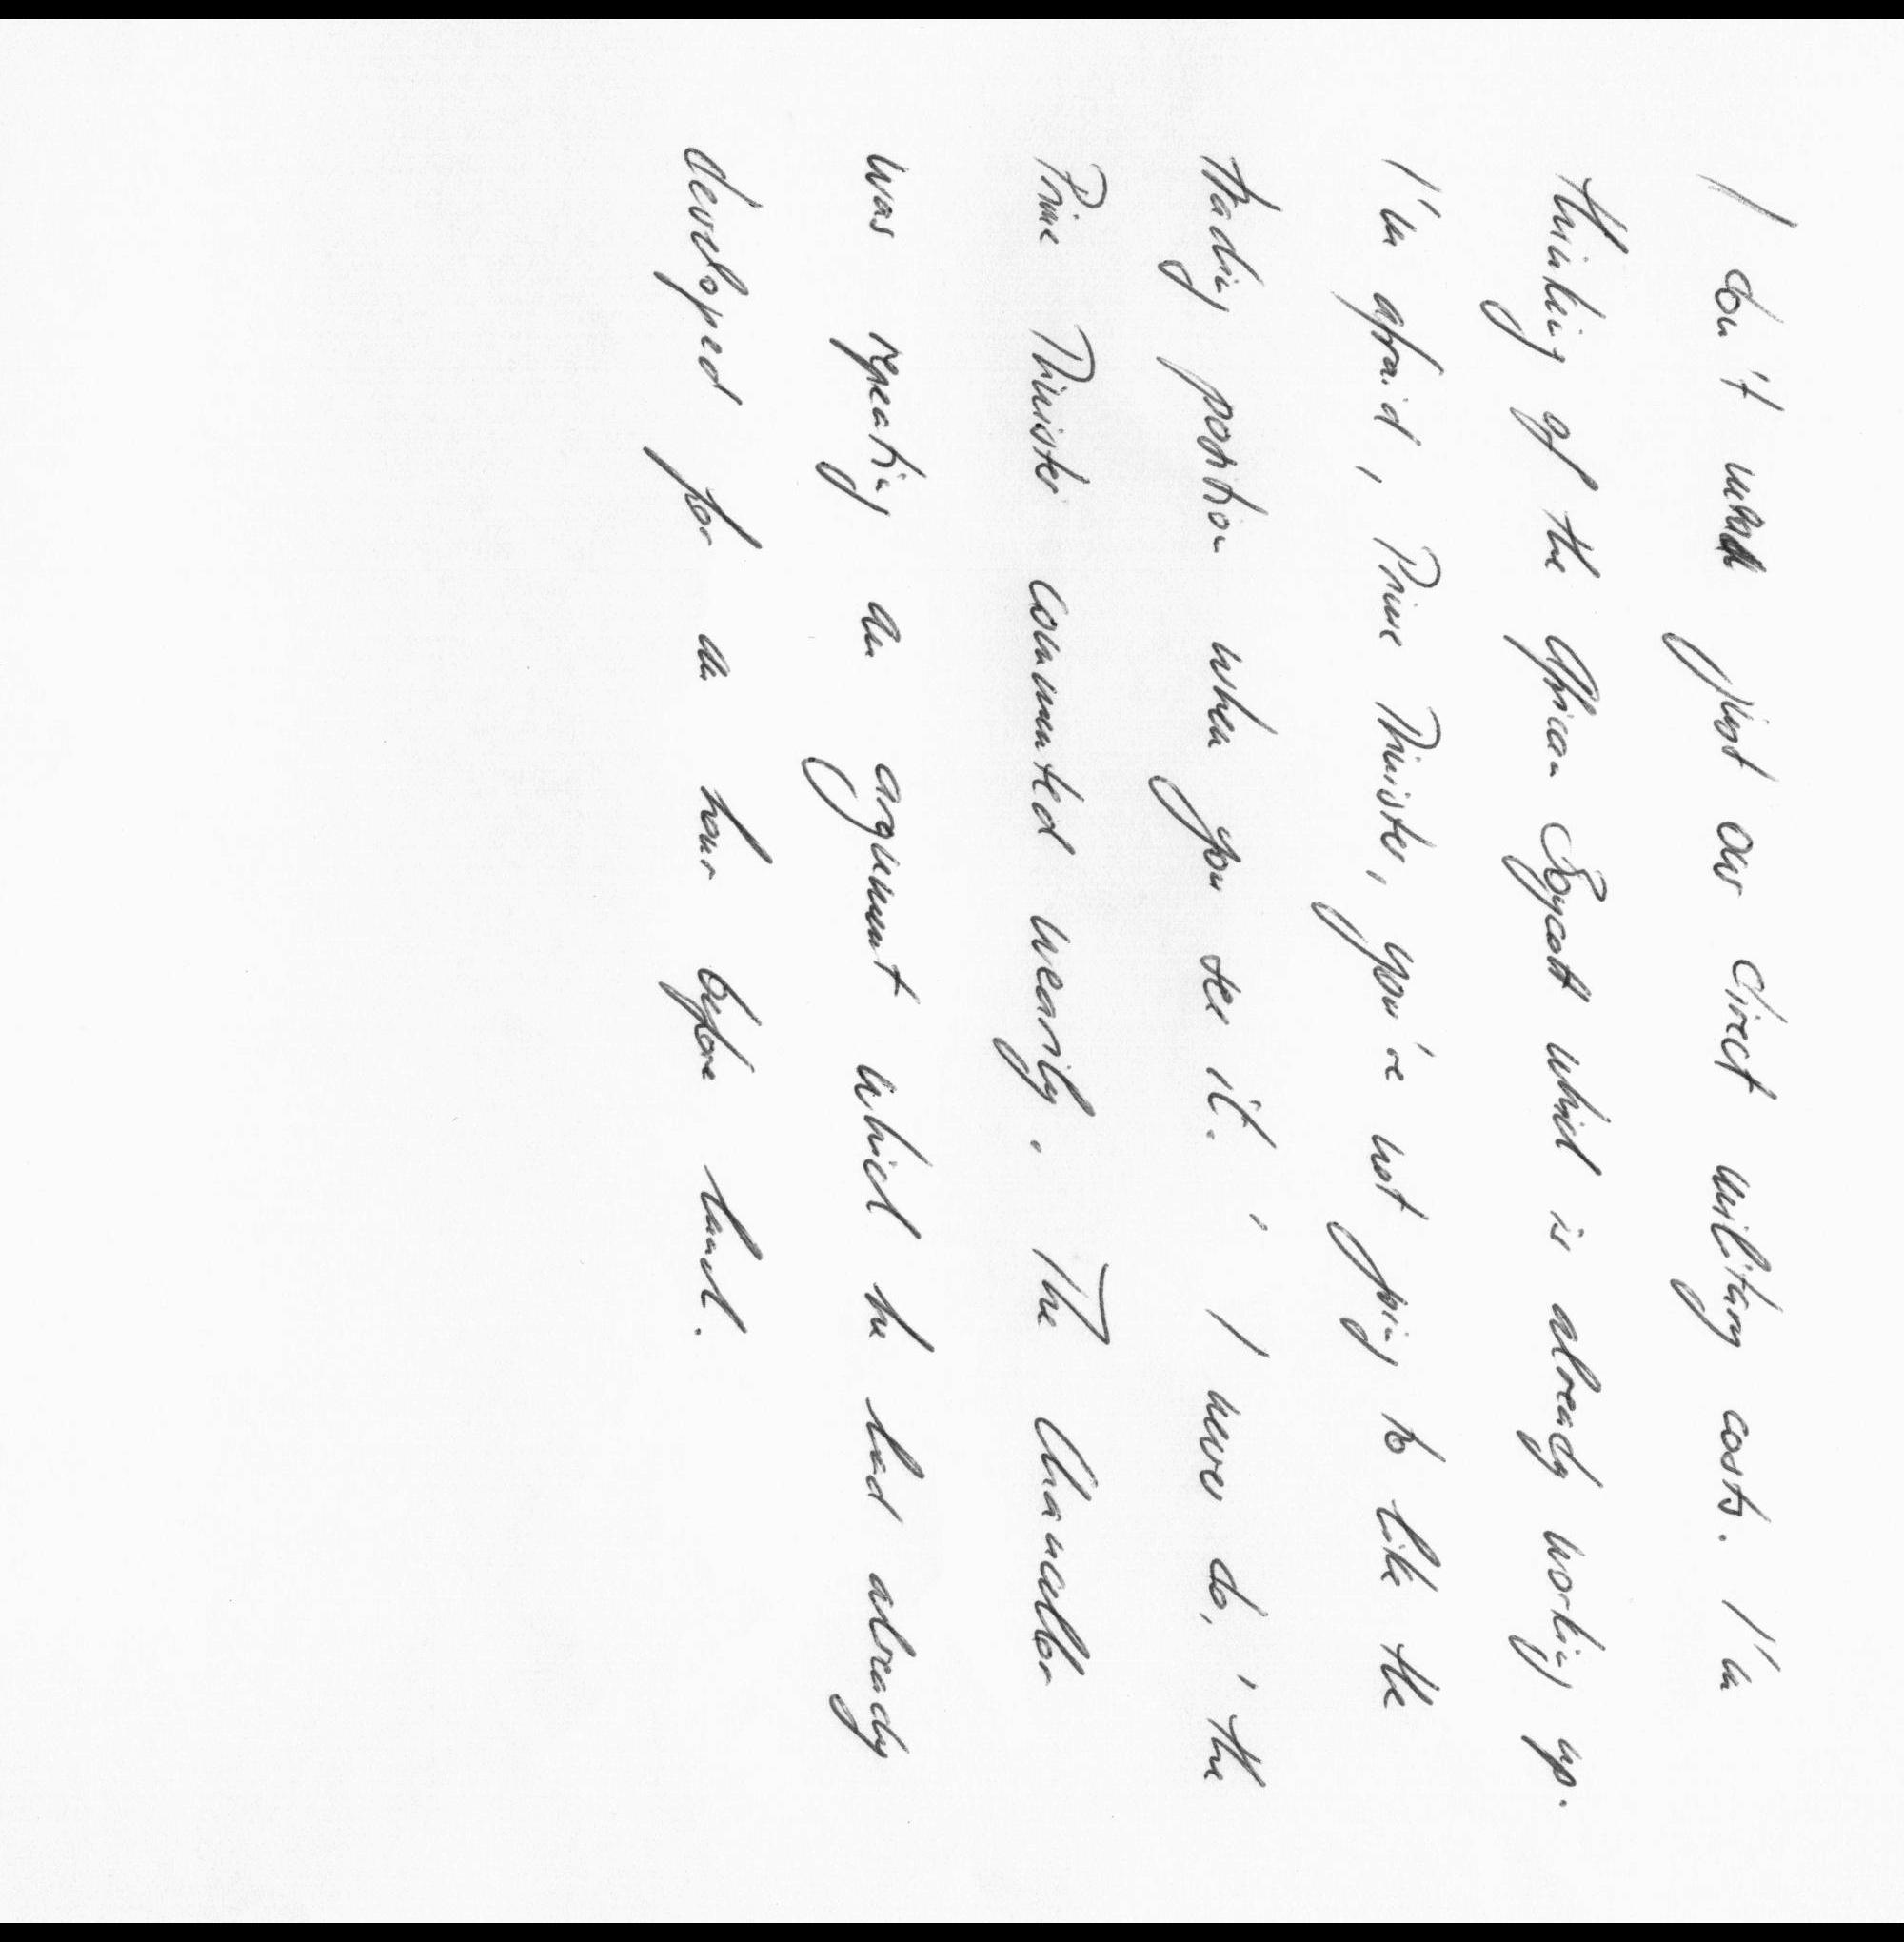 I don't mean just our direct military costs. I'm
thinking of the African Boycott which is already working up.
I'm afraid, Prime Minister, you're not going to like the
trading position when you see it. ' I never do, ' the
Prime Minister commented wearily. The Chancellor
was repeating an argument which he had already
developed for an hour before lunch.